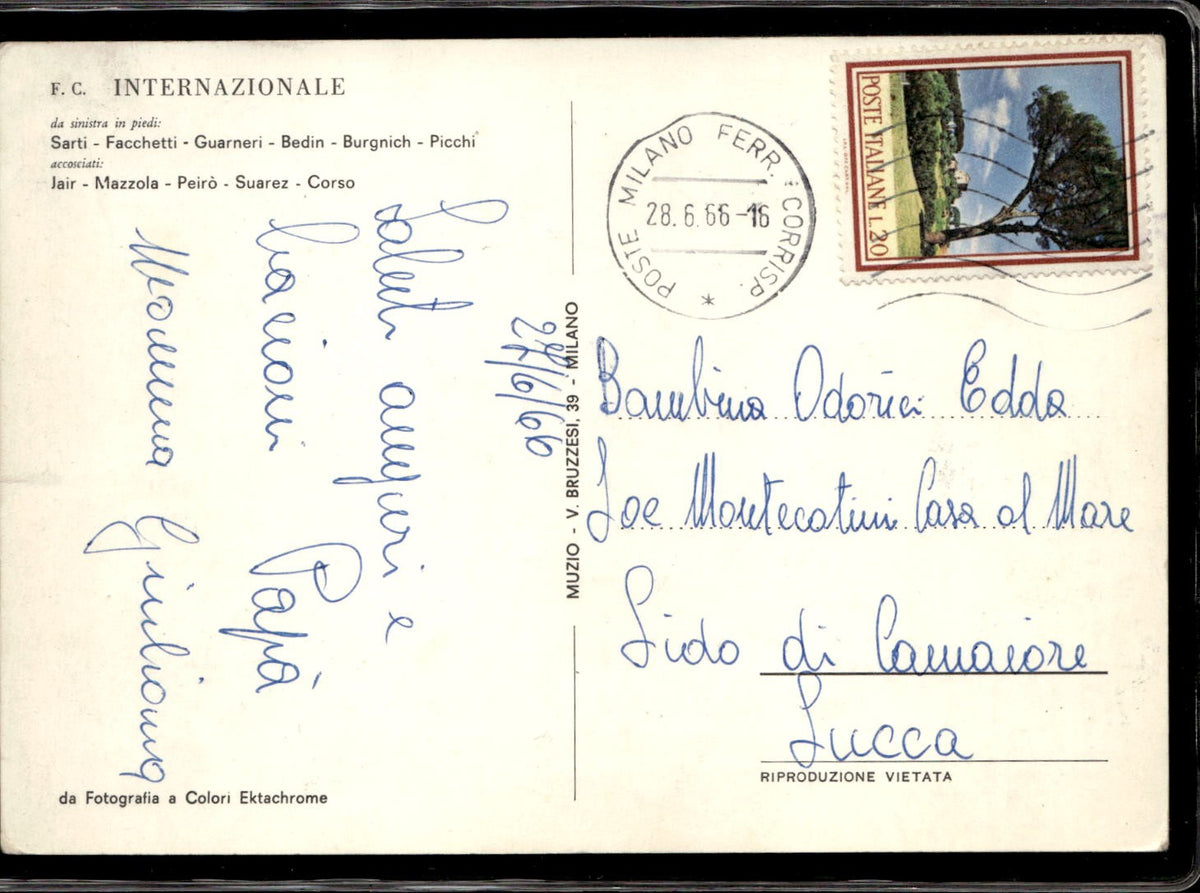 F. C. INTERNAZIONALE
da sinistra in piedi:
Sarti - Facchetti - Guarneri - Bedin - Burgnich - Picchi
accosciati:
Jair - Mazzola - Peirò - Suarez - Corso
27/6/66
Saluti auguri e
bacioni Papà
Mamma Giuliana
da Fotografia a Colori Ektachrome
MUZIO - V. BRUZZESI, 39 - MILANO
POSTE MILANO FERR. CORRISP. *
28.6.66-16
POSTE ITALIANE L.20
Bambina Odorici Edda
Joe Montecatini Casa al Mare
Lido di Camaiore
Lucca
RIPRODUZIONE VIETATA